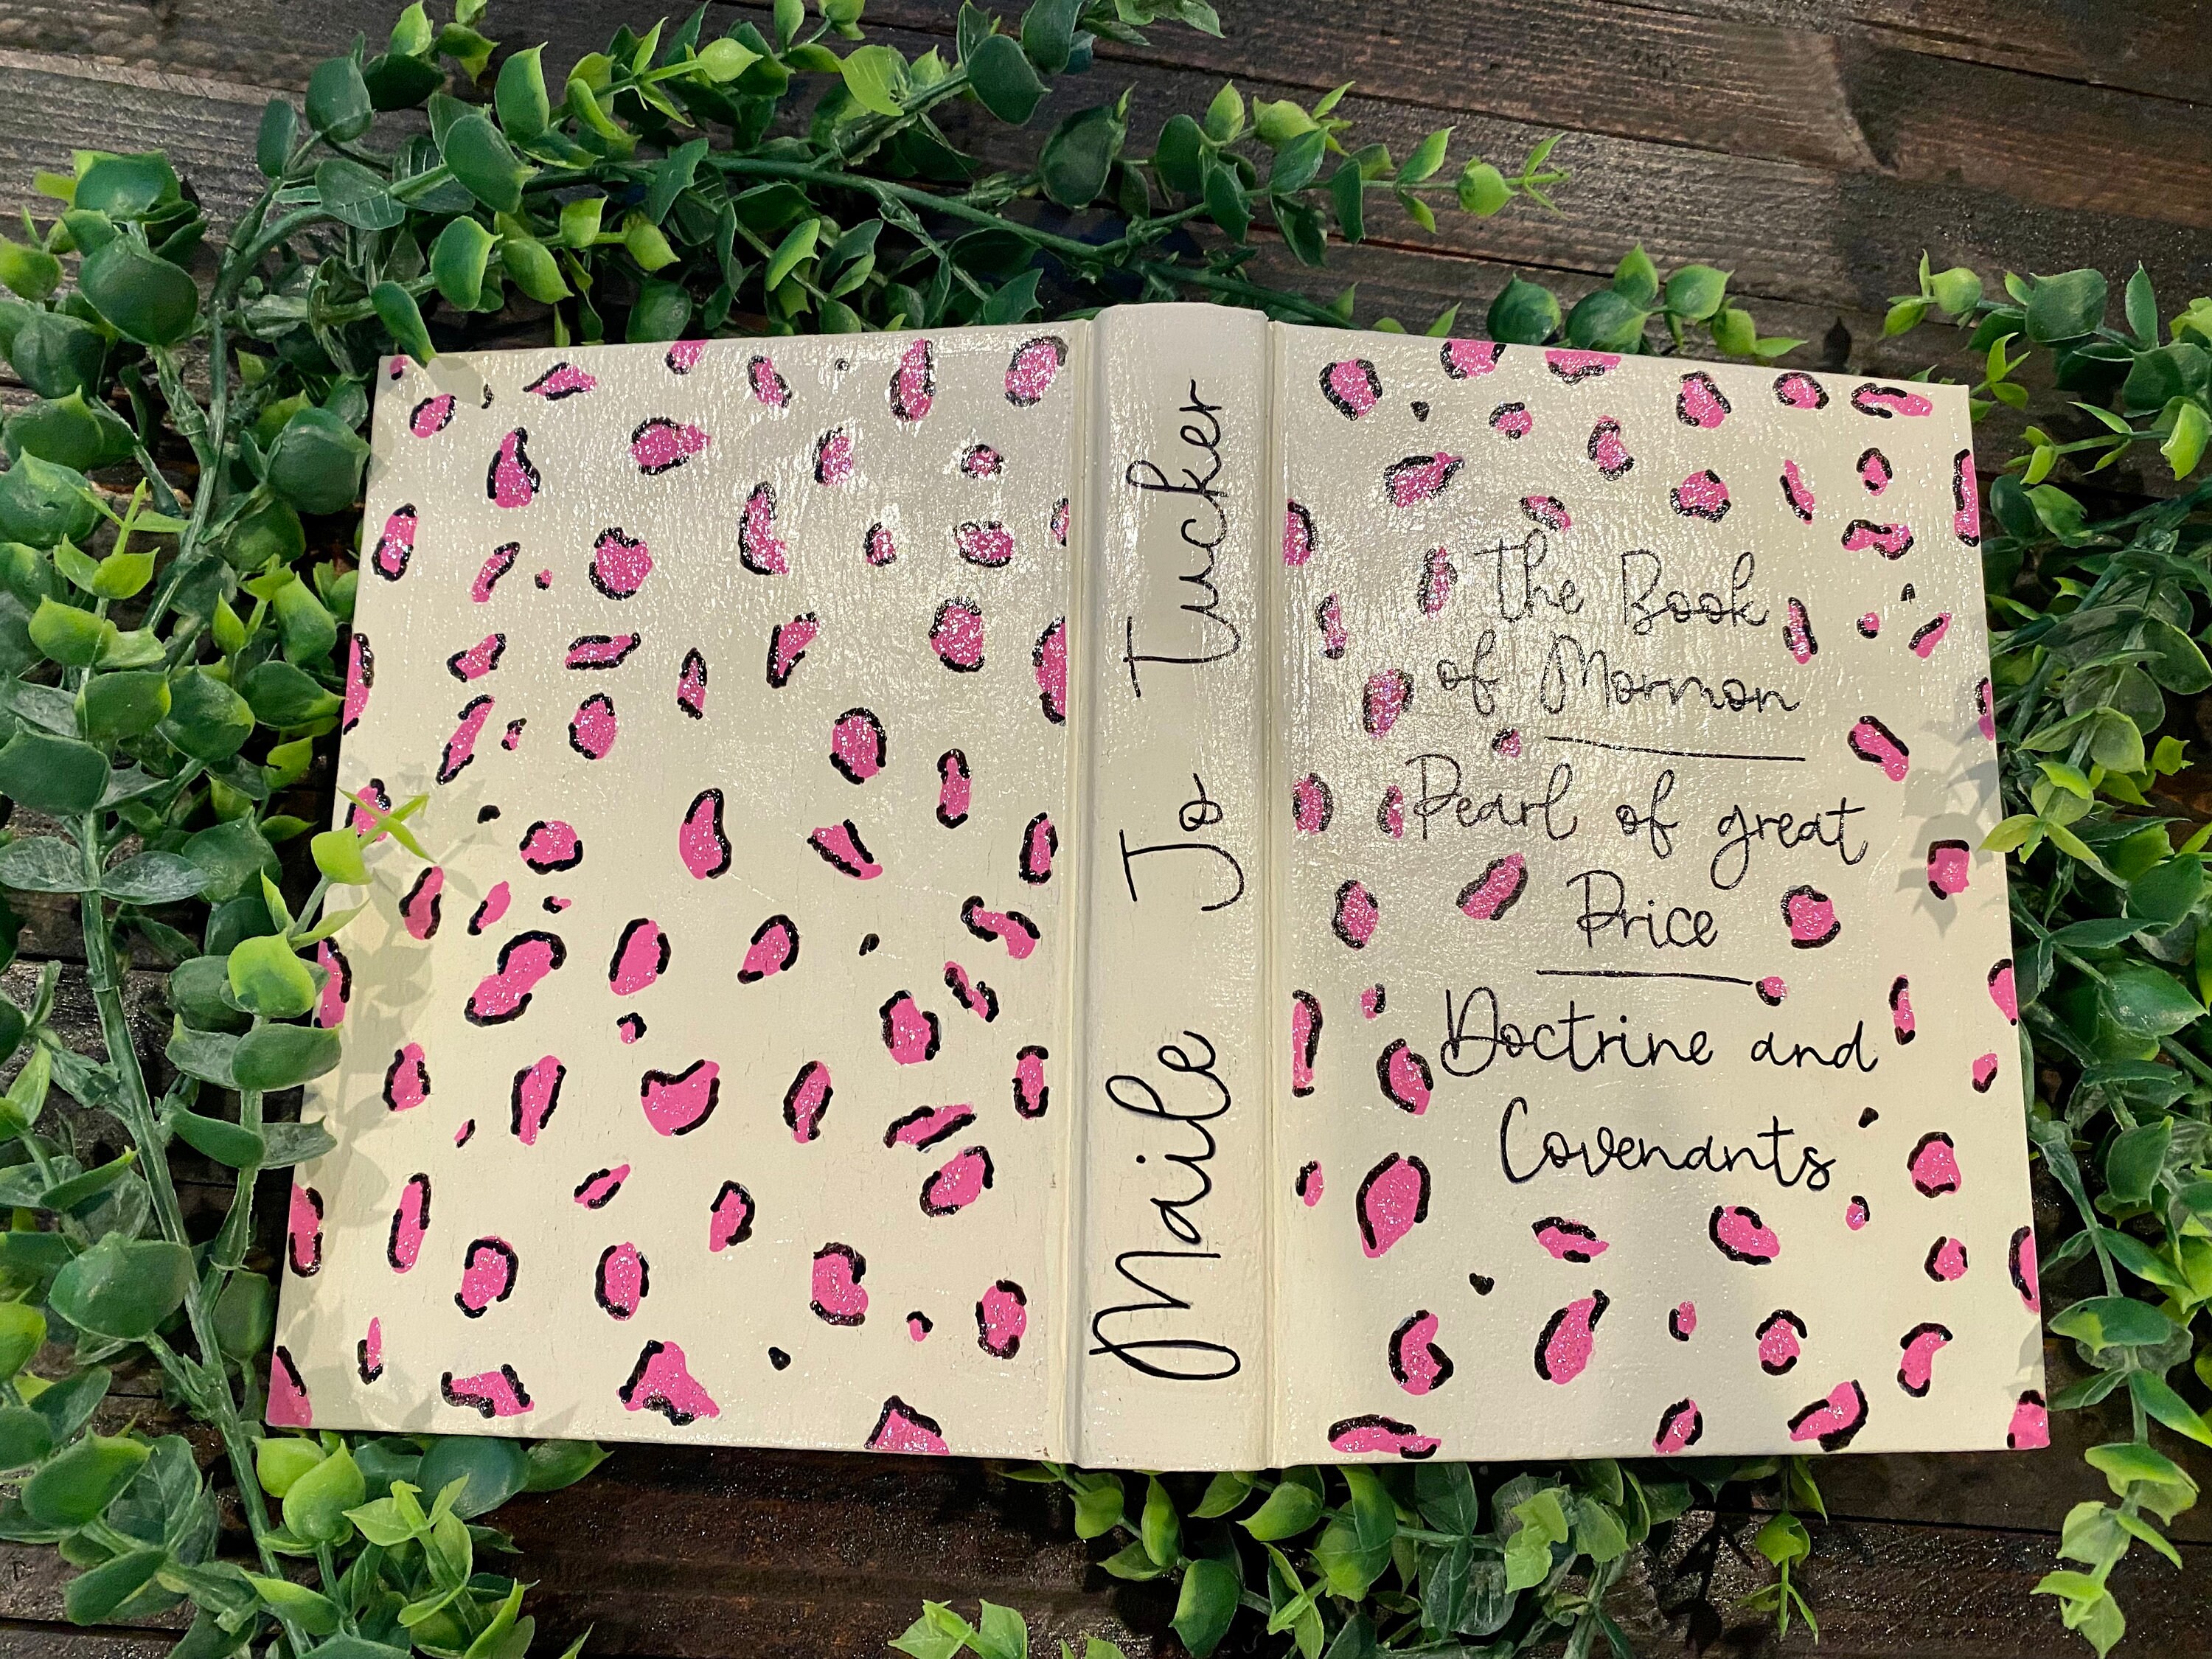 Maile Jo Tucker
the Book
of Mormon
Pearl of great
Price
Doctrine and
Covenants